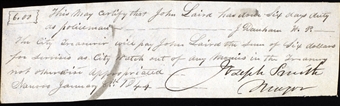 6.00
This May certify that John Laird has done six days duty
as policeman
The City Treasurer will pay John Laird the sum of Six dollars
for services as City Watch out of any Moneys in the Treasury
not otherwise appropriated
Nauvoo January 1844
Joseph Smith
Mayor